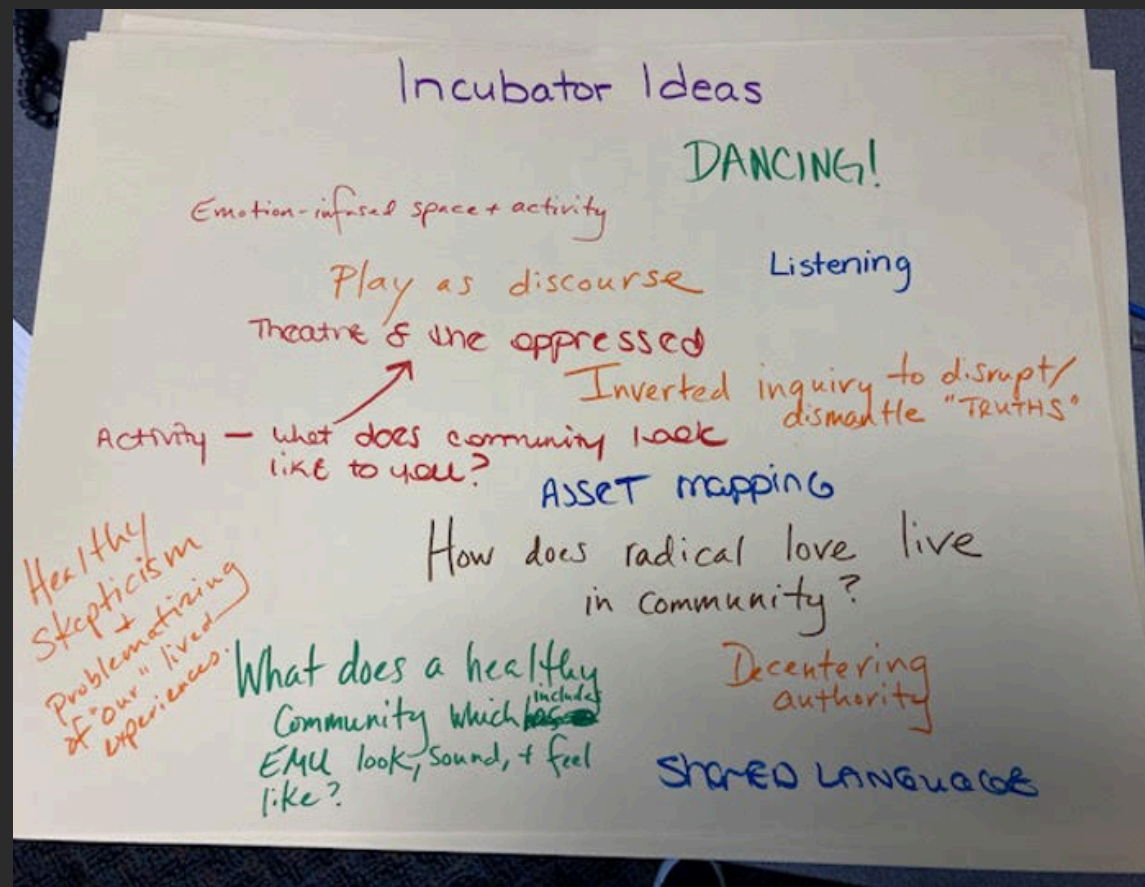 Incubator Ideas
DANCING!
Emotion-infused space + activity
Listening
Play as discourse
Theatre & the oppressed
Inverted inquiry to disrupt/
dismantle "TRUTHS"
Activity — What does community look
like to you?
ASSET mapping
How does radical love live
in community?
Healthy
Skepticism
+
Problematizing
of "our" lived
experiences.
What does a healthy
Community which includes
EMU look, sound, + feel
like?
Decentering
authority
SHARED LANGUAGE